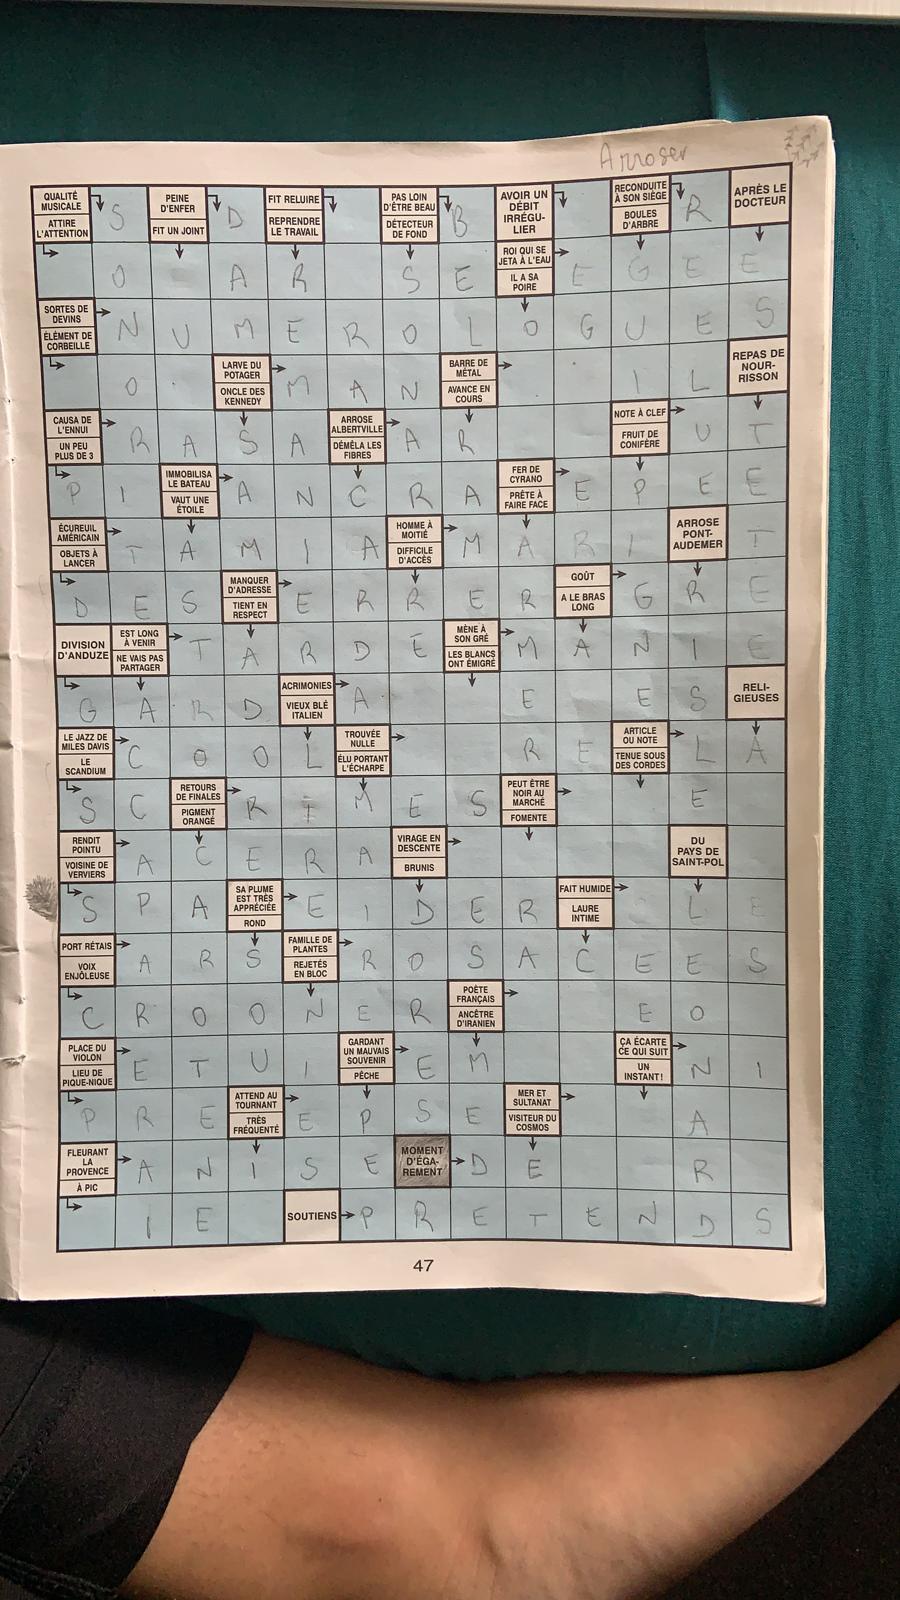 Arroser
QUALITÉ MUSICALE
ATTIRE L'ATTENTION
S
PEINE D'ENFER
FIT UN JOINT
D
FIT RELUIRE
REPRENDRE LE TRAVAIL
PAS LOIN D'ÊTRE BEAU
DÉTECTEUR DE FOND
B
AVOIR UN DÉBIT IRRÉGU-LIER
RECONDUITE À SON SIÈGE
BOULES D'ARBRE
R
APRÈS LE DOCTEUR
O A R S E
ROI QUI SE JETA À L'EAU
IL A SA POIRE
E G E E
SORTES DE DEVINS
ÉLÉMENT DE CORBEILLE
N U M E R O L O G U E S
O
LARVE DU POTAGER
ONCLE DES KENNEDY
M A N
BARRE DE MÉTAL
AVANCE EN COURS
I L
REPAS DE NOUR-RISSON
CAUSA DE L'ENNUI
UN PEU PLUS DE 3
R A S A
ARROSE ALBERTVILLE
DÉMÊLA LES FIBRES
A R
NOTE À CLEF
FRUIT DE CONIFÈRE
U T
P I
IMMOBILISA LE BATEAU
VAUT UNE ÉTOILE
A N C R A
FER DE CYRANO
PRÊTE À FAIRE FACE
E P E E
ÉCUREUIL AMÉRICAIN
OBJETS À LANCER
T A M I A
HOMME À MOITIÉ
DIFFICILE D'ACCÈS
M A R I
ARROSE PONT-AUDEMER
T
D E S
MANQUER D'ADRESSE
TIENT EN RESPECT
E R R E R
GOÛT
A LE BRAS LONG
G R E
DIVISION D'ANDUZE
EST LONG À VENIR
NE VAIS PAS PARTAGER
T A R D E
MÈNE À SON GRÉ
LES BLANCS ONT ÉMIGRÉ
M A N I E
G A R D
ACRIMONIES
VIEUX BLÉ ITALIEN
A E E S
RELI-GIEUSES
LE JAZZ DE MILES DAVIS
LE SCANDIUM
C O O L
TROUVÉE NULLE
ÉLU PORTANT L'ÉCHARPE
R E
ARTICLE OU NOTE
TENUE SOUS DES CORDES
L A
S C
RETOURS DE FINALES
PIGMENT ORANGÉ
R I M E S
PEUT ÊTRE NOIR AU MARCHÉ
FOMENTE
E
RENDIT POINTU
VOISINE DE VERVIERS
A C E R A
VIRAGE EN DESCENTE
BRUNIS
DU PAYS DE SAINT-POL
S P A
SA PLUME EST TRÈS APPRÉCIÉE
ROND
E I D E R
FAIT HUMIDE
LAURE INTIME
L E
PORT RÉTAIS
VOIX ENJÔLEUSE
A R S
FAMILLE DE PLANTES
REJETÉS EN BLOC
R O S A C E E S
C R O O N E R
POÈTE FRANÇAIS
ANCÊTRE D'IRANIEN
E O
PLACE DU VIOLON
LIEU DE PIQUE-NIQUE
E T U I
GARDANT UN MAUVAIS SOUVENIR
PÊCHE
E M
ÇA ÉCARTE CE QUI SUIT
UN INSTANT!
N I
P R E
ATTEND AU TOURNANT
TRÈS FRÉQUENTÉ
E P S E
MER ET SULTANAT
VISITEUR DU COSMOS
A
FLEURANT LA PROVENCE
À PIC
A N I S E
MOMENT D'ÉGA-REMENT
D E R
I E
SOUTIENS
P R E T E N D S
47